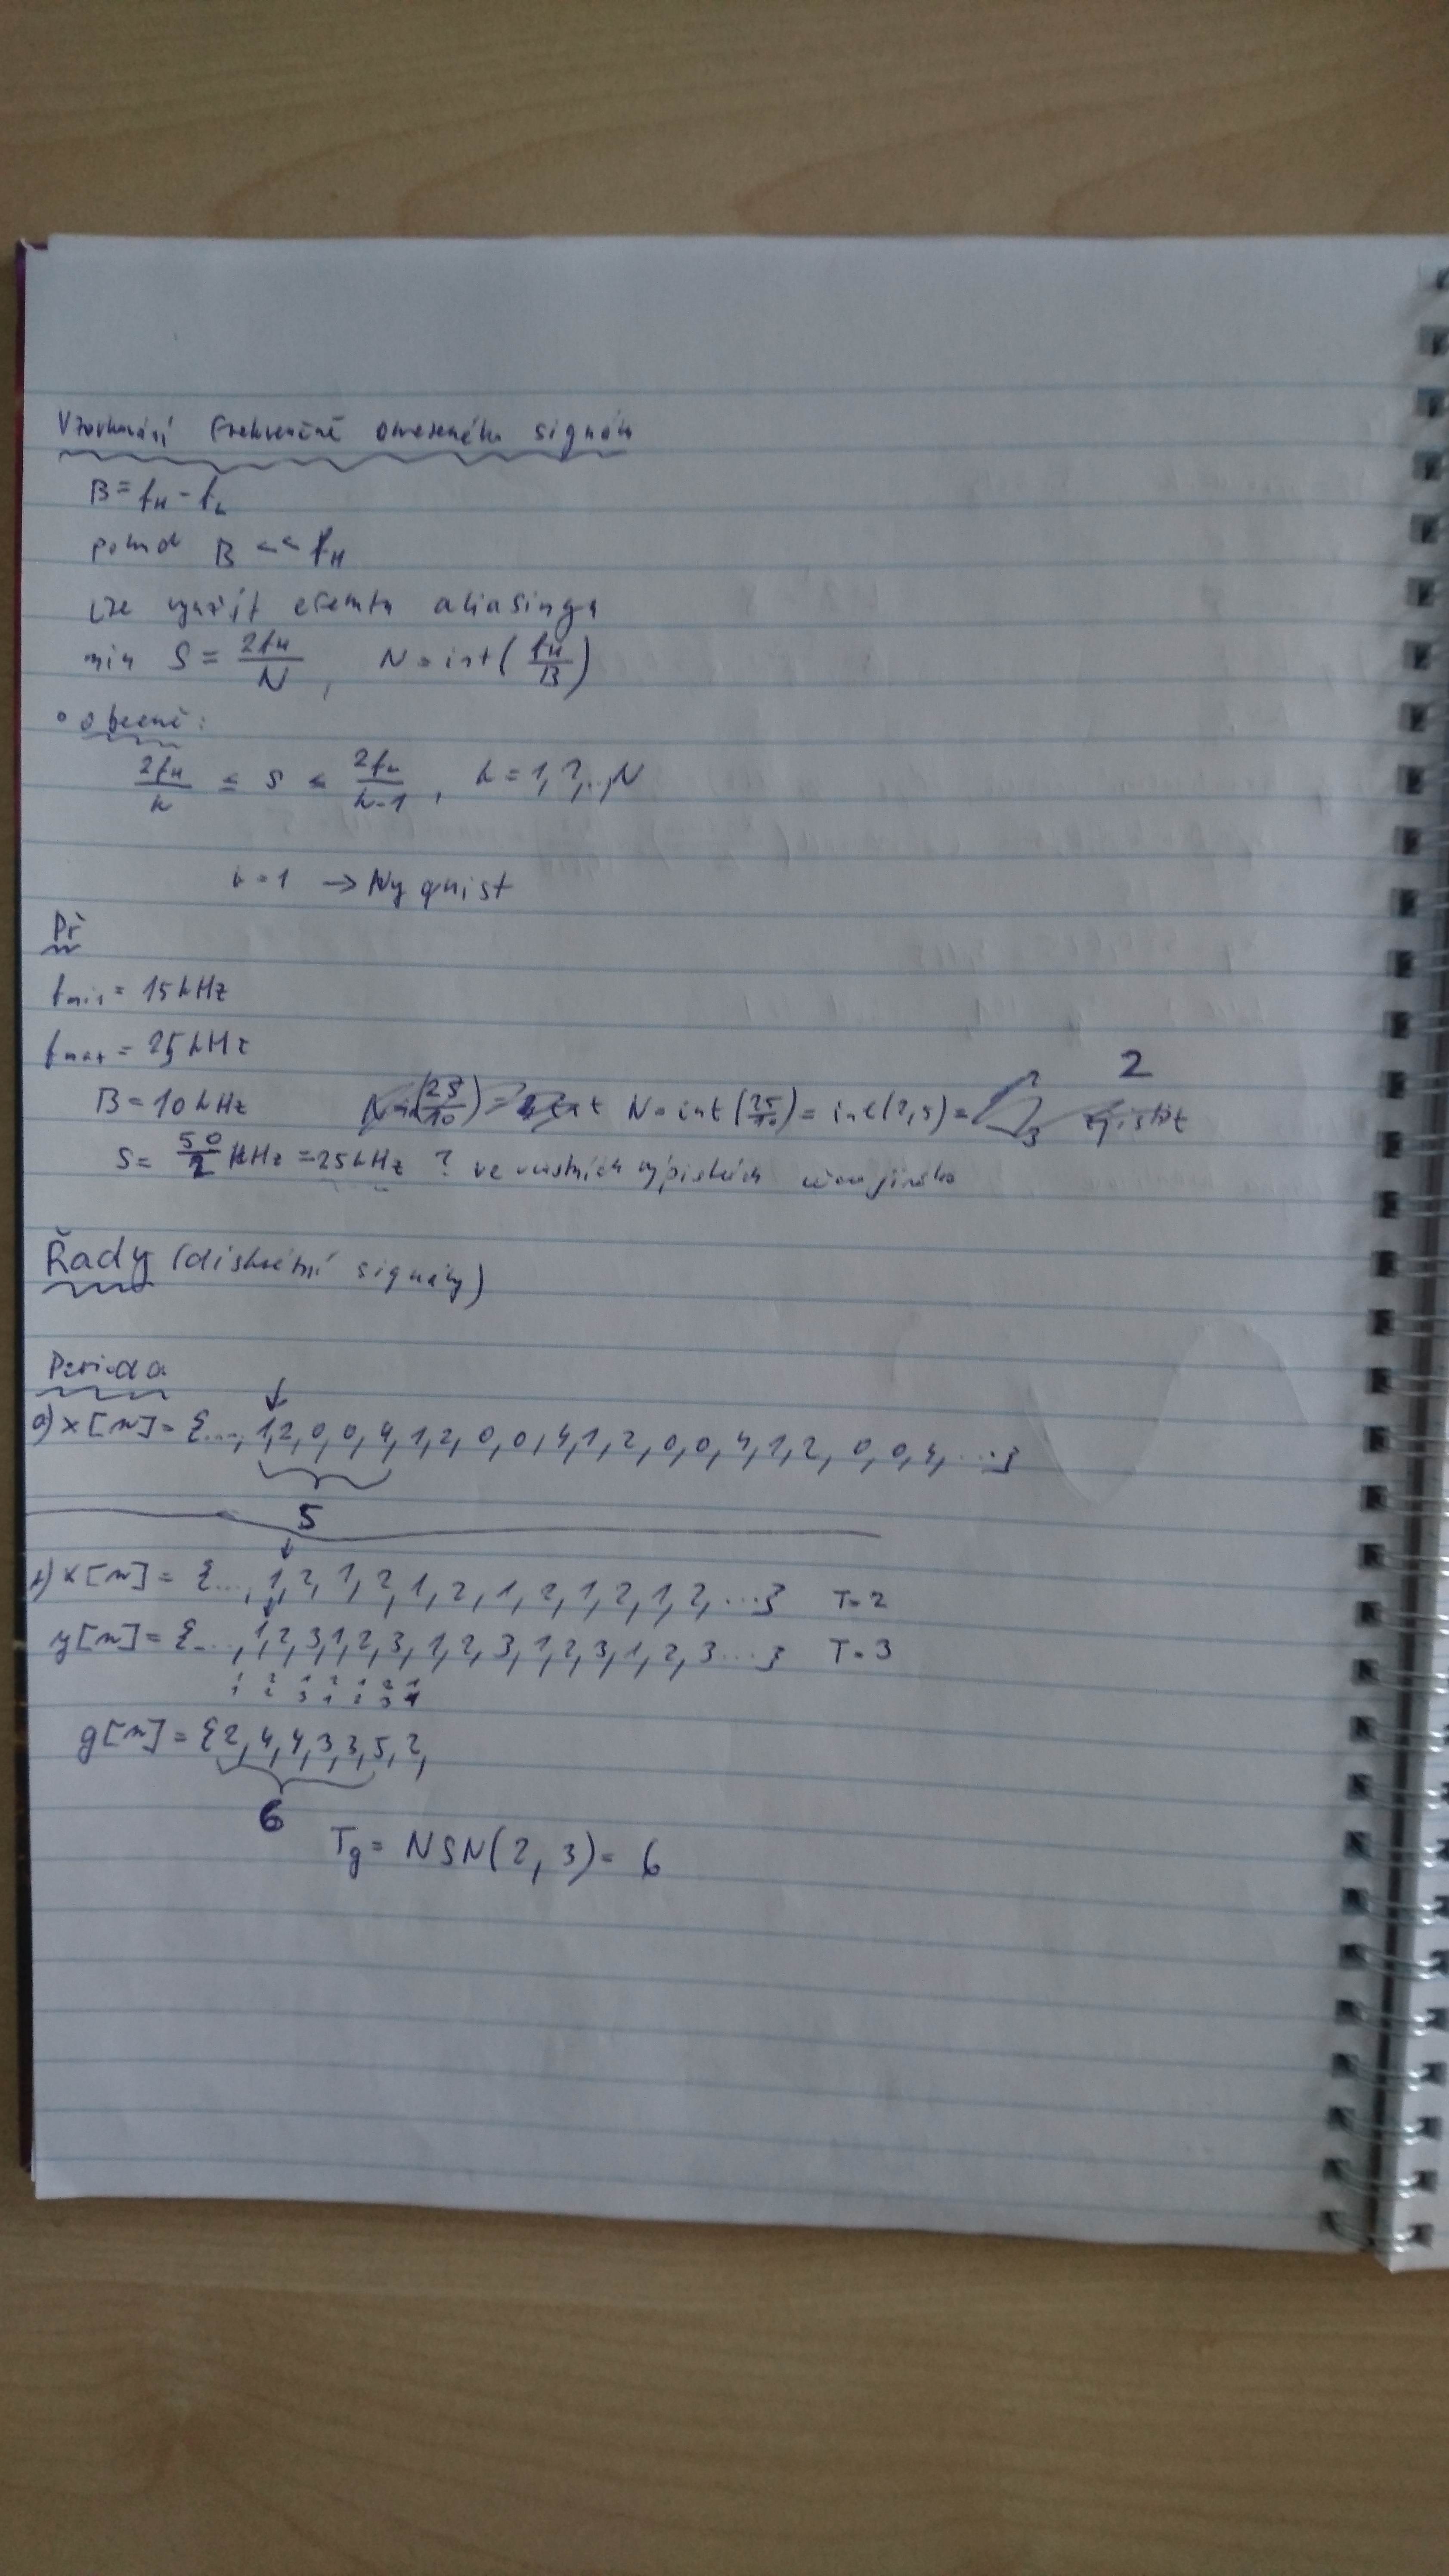 Vzorkování frekvenčně omezeného signálu
B = f_H - f_L
pokud B << f_H
lze využít efektu aliasingu
min S = 2f_H / N , N = int(f_H / B)
• obecně:
2f_H / k ≤ S ≤ 2f_L / k-1 , k = 1, 2, .., N
k = 1 → Nyquist
Př
f_min = 15 kHz
f_max = 25 kHz
B = 10 kHz N = int(25/10) = int(2,5) = 2
S = 50/2 kHz = 25 kHz ? ve vlastních výpiskách něco jiného
Řady (diskrétní signály)
Perioda
↓
a) x[n] = {..., 1, 2, 0, 0, 4, 1, 2, 0, 0, 4, 1, 2, 0, 0, 4, 1, 2, 0, 0, 4, ...}
5
↓
b) x[n] = {..., 1, 2, 1, 2, 1, 2, 1, 2, 1, 2, 1, 2, ...} T = 2
y[n] = {..., 1, 2, 3, 1, 2, 3, 1, 2, 3, 1, 2, 3, 1, 2, 3 ...} T = 3
1 2 1 2 1 2 1
1 2 3 1 2 3 1
g[n] = {2, 4, 4, 3, 3, 5, 2,
6
T_g = NSN(2, 3) = 6